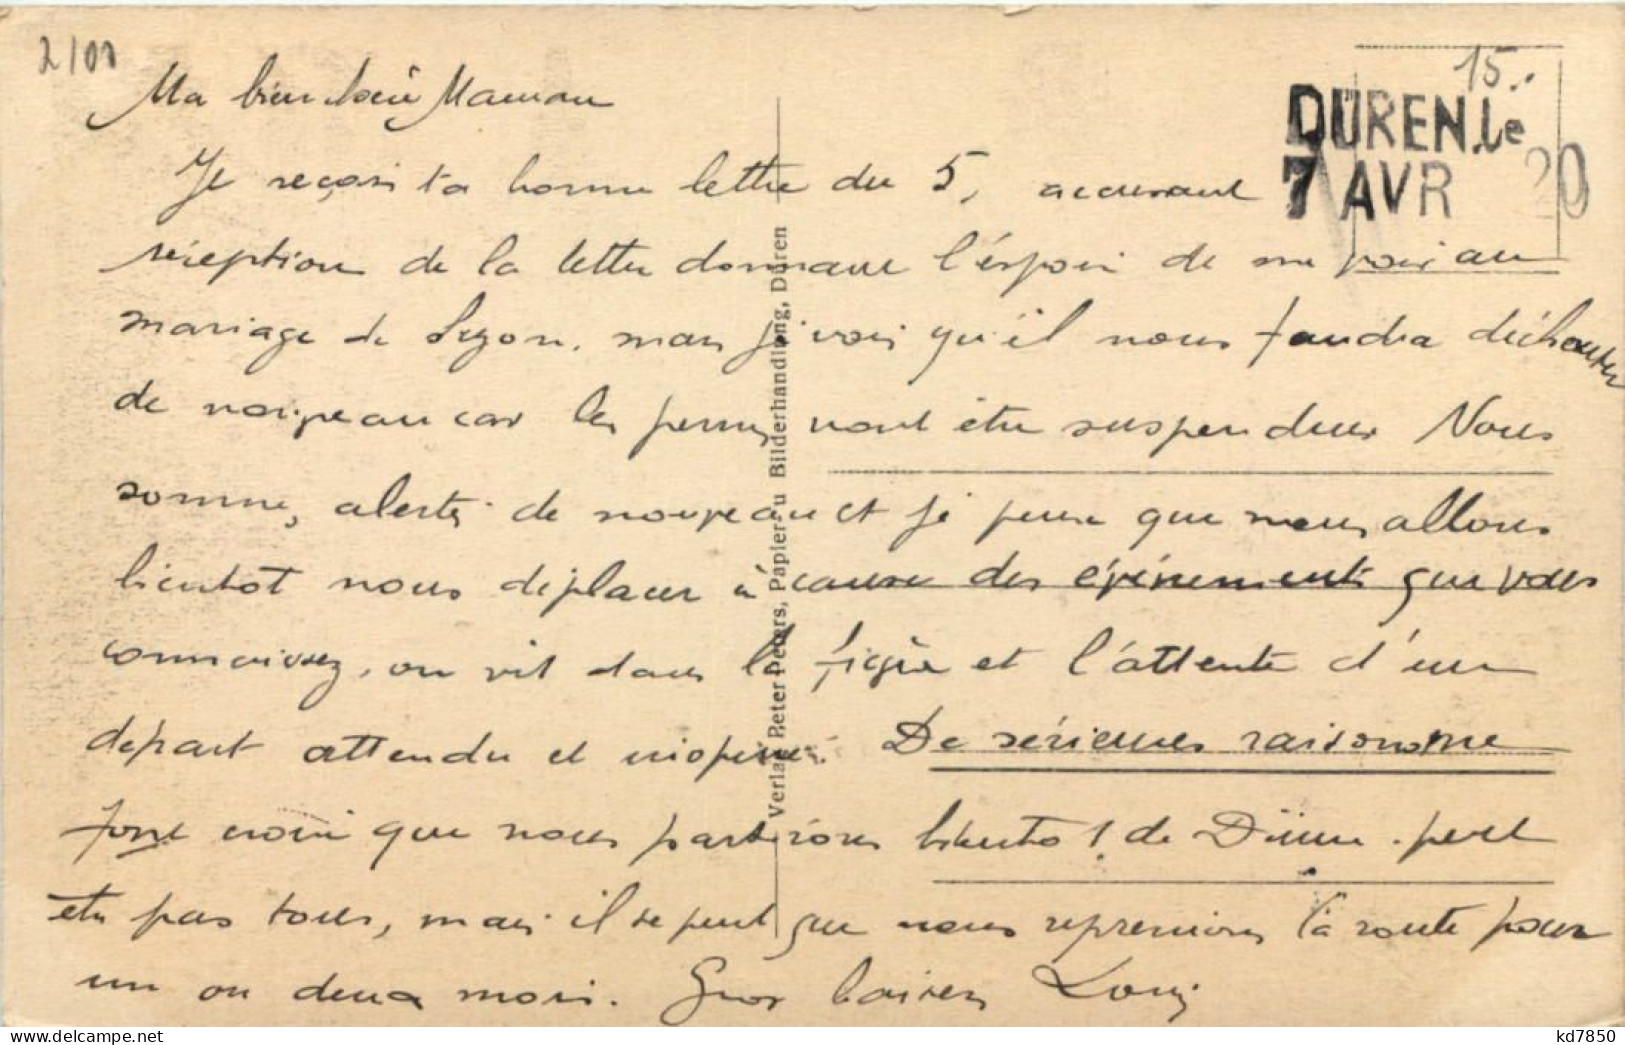 2/00
15.
DÜREN.le
7 AVR 20
Ma bien chère Maman
Je reçois ta bonne lettre du 5, accusant
réception de la lettre donnant l'éspoir de me voir au
mariage de Suzon. mais je vois qu'il nous faudra déchanter
de nouveau car les perms vont être suspendues Nous
sommes alertés de nouveau et je pense que nous allons
bientôt nous déplacer à cause des événements que vous
connaissez, on vit dans la fièvre et l'attente d'un
départ attendu et inopiné. De sérieuses raisons me
font croire que nous partirons bientôt de Düren. peut
etre pas tous, mais il se peut que nous reprenions la route pour
un ou deux mois. Gros baisers Louis
Verlag Peter Peters, Papier- u Bilderhandlung, Düren
kd7850